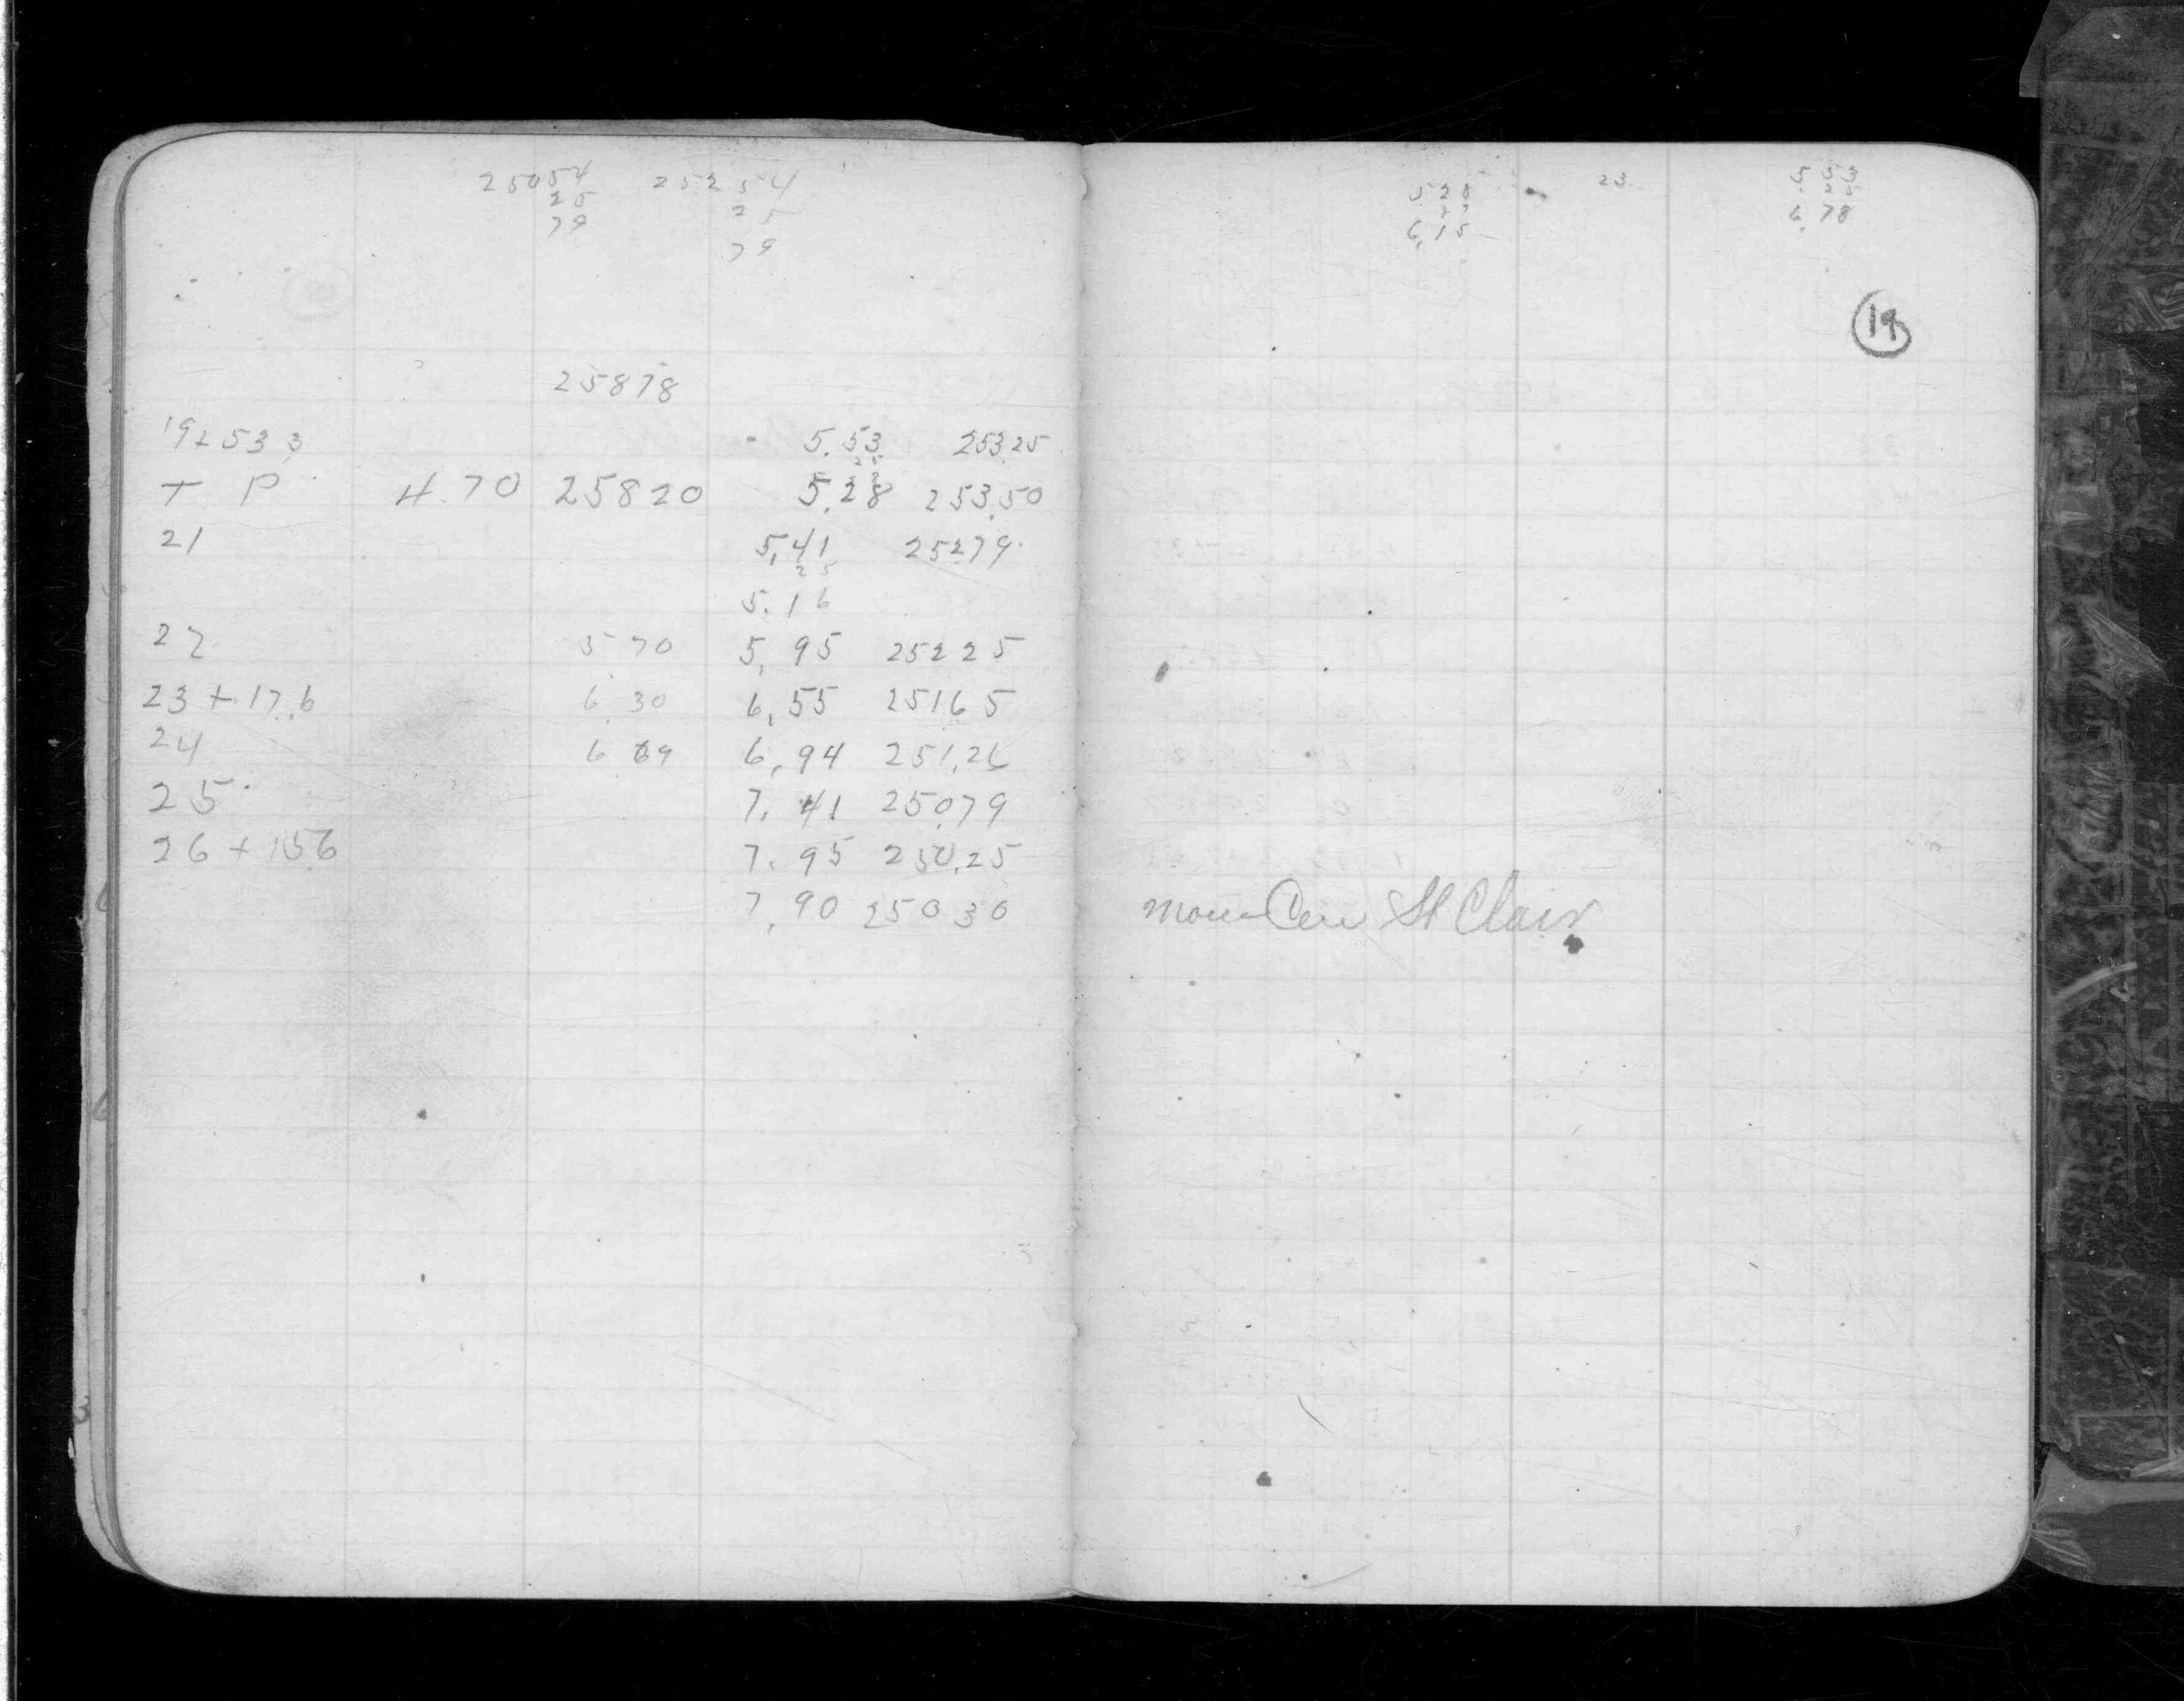 25054 25254
25 25
79 79
25878
19+533 5.53 253.25
25
T P 4.70 25820 5.28 253.50
21 5.41 25279
25
5.16
22 5 70 5.95 25225
23+17.6 6.30 6.55 25165
24 6 69 6.94 251.26
25 7.41 25079
26+156 7.95 250.25
7.90 25030
528 23 5 53
6.15 6.78
19
St Clair